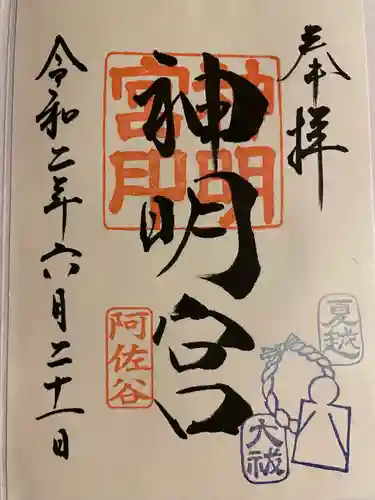 奉拝
神明宮
神明宮印
阿佐谷
夏越
大祓
令和二年六月二十一日